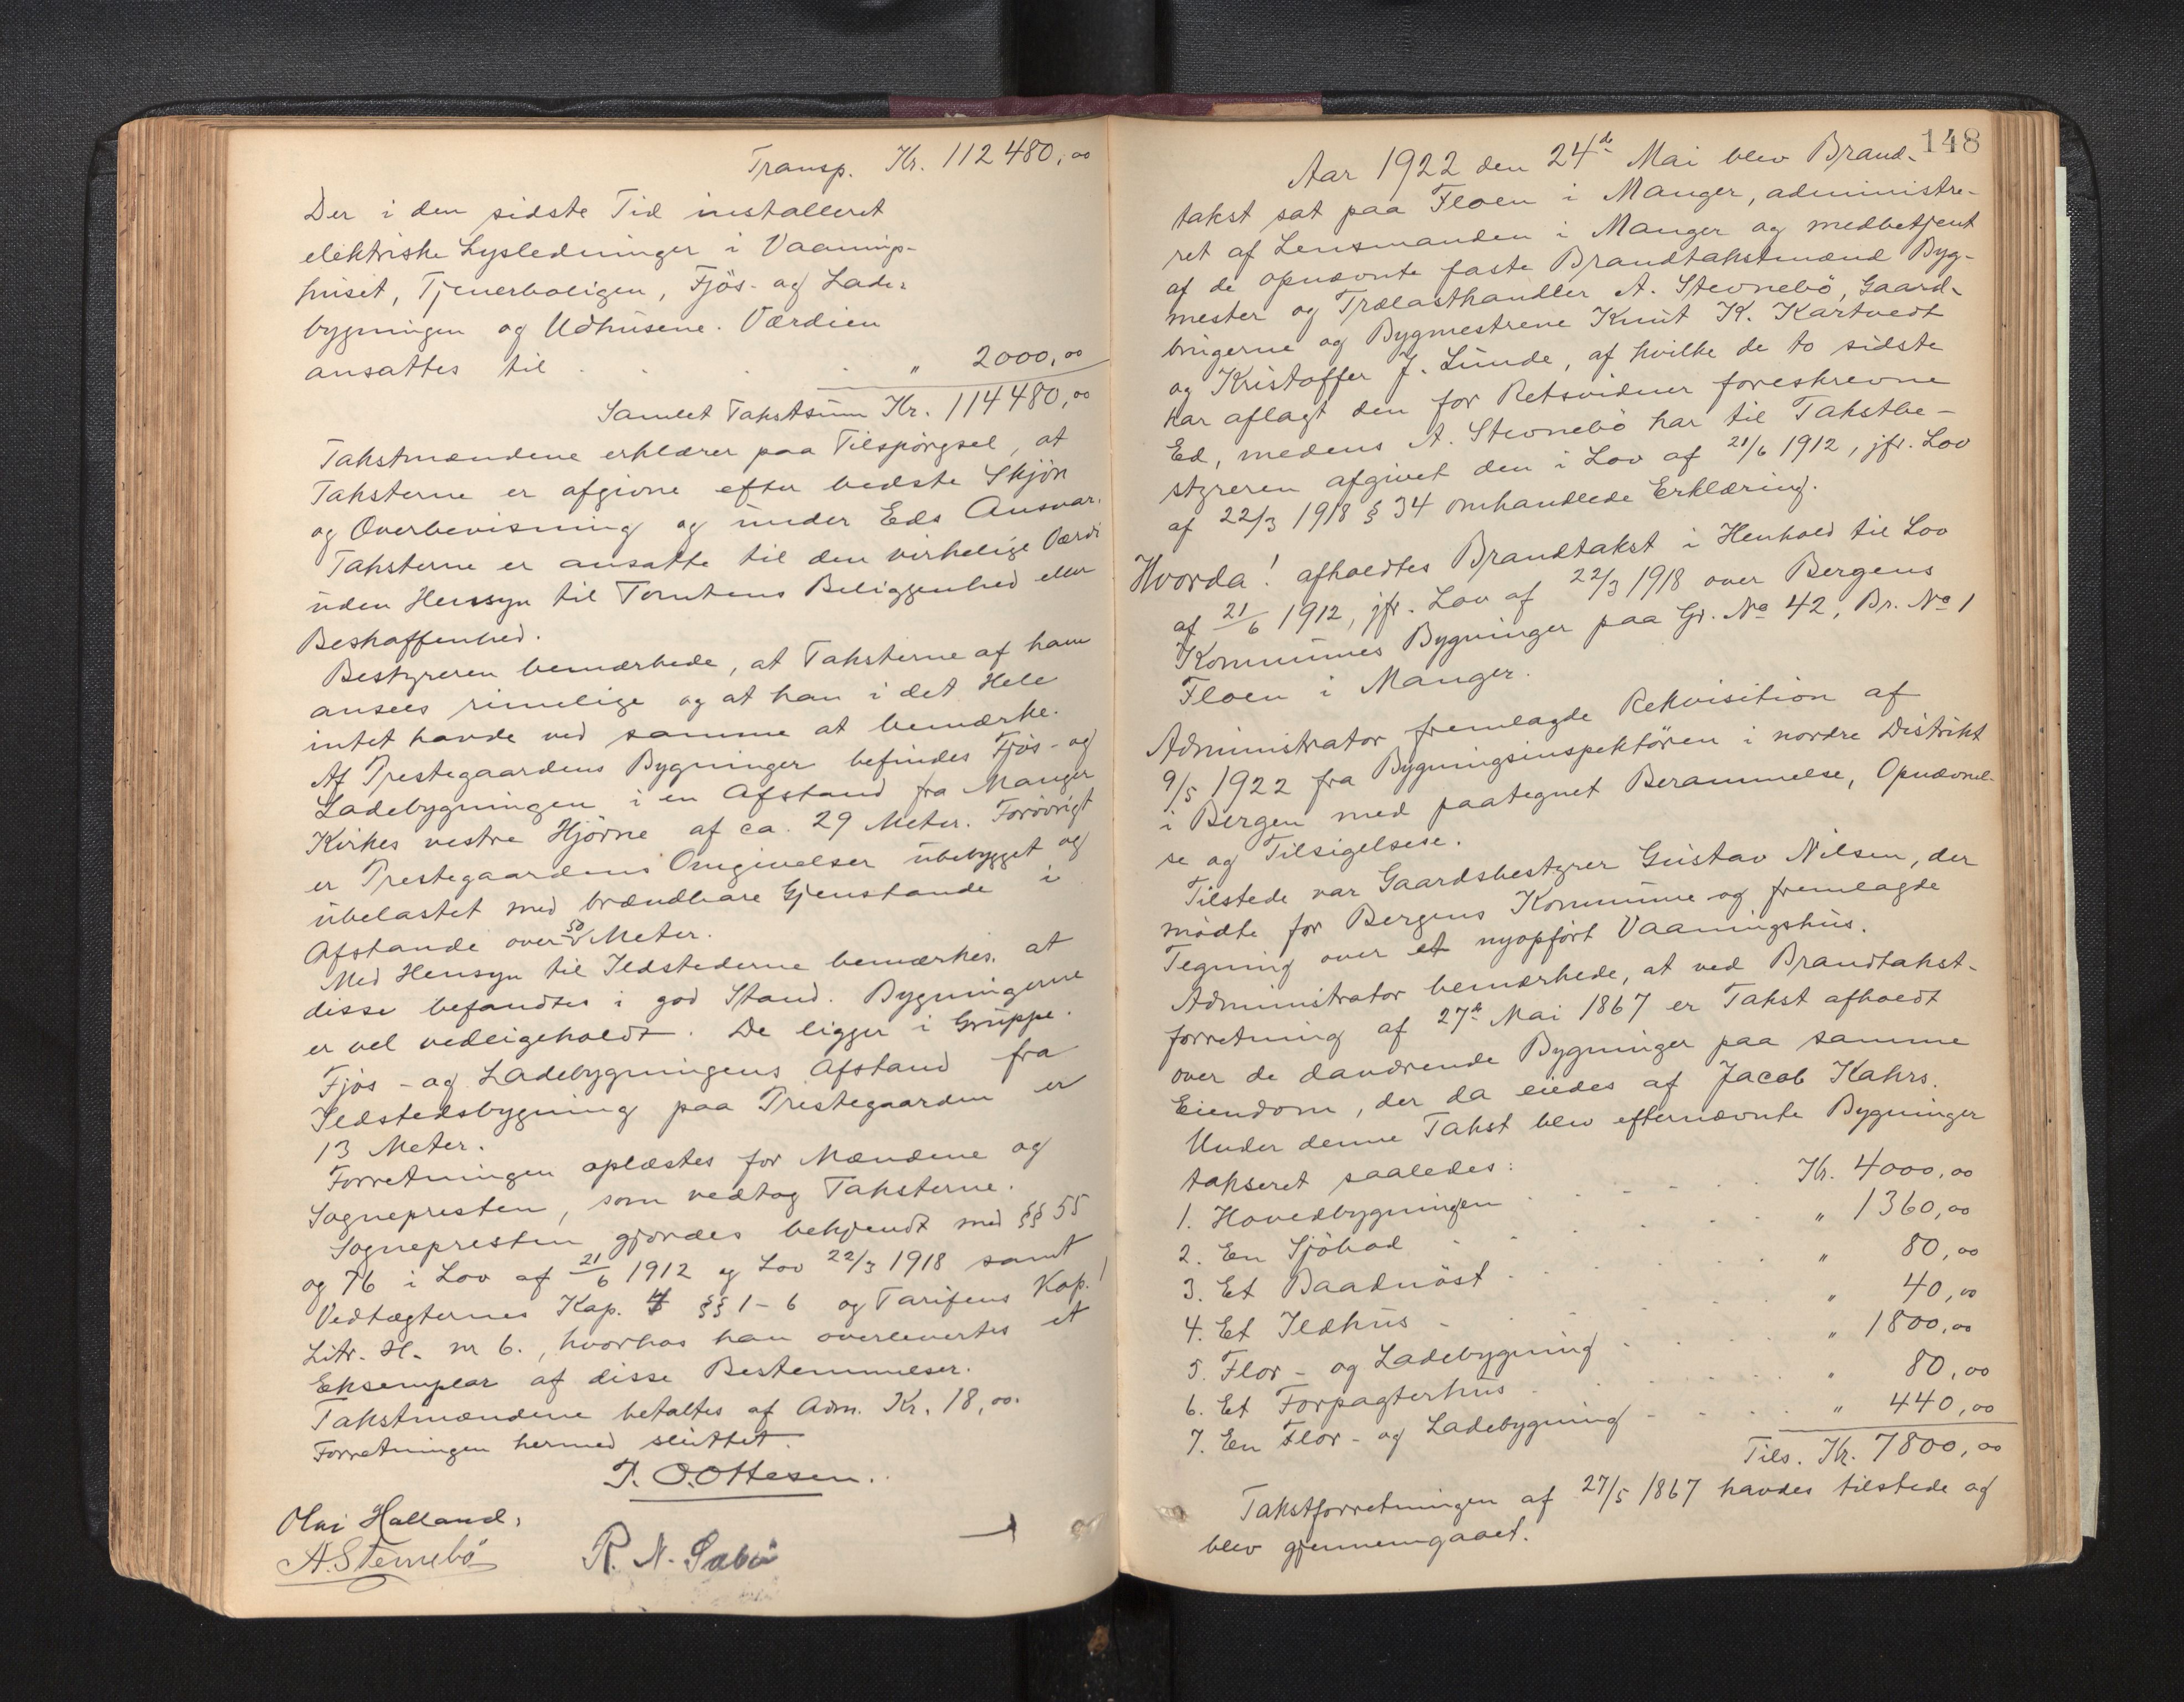 Transp. Kr. 112480,00
Der i den sidste Tid installeret
elektriske Lysledninger i Vaanings-
huset, Tjenerboligen, Fjös- og Lade-
bygningen og Udhusene. Værdien
ansattes til . . . . „ 2000,00
Samlet Takstsum Kr. 114480,00
Takstmændene erklærer paa Tilspörgsel, at
Taksterne er afgivne efter bedste Skjön
og Overbevisning og under Eds Ansvar.
Taksterne er ansatte til den virkelige Værdi
uden Hensyn til Tomtens Beliggenhed eller
Beskaffenhed.
Bestyreren bemærkede, at Taksterne af ham
ansees rimelige og at han i det Hele
intet havde ved samme at bemærke.
Af Prestegaardens Bygninger befindes Fjös- og
Ladebygningen i en Afstand fra Manger
Kirkes vestre Hjörne af ca. 29 Meter. Forövrigt
er Prestegaardens Omgivelser ubebygget og
ubelastet med brændbare Gjenstande i
Afstande over 50 Meter.
Med Hensyn til Ildstederne bemærkes, at
disse befandtes i god Stand. Bygningerne
er vel vedligeholdt. De ligger i Gruppe.
Fjös- og Ladebygningens Afstand fra
Ildstedsbygning paa Prestegaarden er
13 Meter.
Forretningen oplæstes for Mændene og
Sognepresten, som vedtog Taksterne.
Sognepresten gjordes bekjendt med §§ 55
og 76 i Lov af 21/6 1912 og Lov 22/3 1918 samt
Vedtægternes Kap. 4 §§ 1-6 og Tarifens Kap. 1
Litr. H. nr 6., hvorhos han overlevertes et
Eksemplar af disse Bestemmelser.
Takstmændene betaltes af Adm. Kr. 18,00.
Forretningen hermed sluttet.
P. O. Ottesen.
Olai Halland,
A. Stevnebö R. N. Sæbö
148
Aar 1922 den 24de Mai blev Brand-
takst sat paa Floen i Manger, administre-
ret af Lensmanden i Manger og medbetjent
af de opnævnte faste Brandtakstmænd Byg-
mester og Trælasthandler A. Stevnebö, Gaard-
brugerne og Bygmestrene Knut K. Kartvedt
og Kristoffer J. Lunde, af hvilke de to sidste
har aflagt den for Retsvidner foreskrevne
Ed, medens A. Stevnebö har til Takstbe-
styreren afgivet den i Lov af 21/6 1912, jfr. Lov
af 22/3 1918 § 34 omhandlede Erklæring.
Hvorda! afholdtes Brandtakst i Henhold til Lov
af 21/6 1912, jfr. Lov af 22/3 1918 over Bergens
Kommunes Bygninger paa Gr. No 42, Br. No 1
Floen i Manger.
Administrator fremlagde Rekvisition af
9/5 1922 fra Bygningsinspektören i nordre Distrikt
i Bergen med paategnet Berammelse, Opnævnel-
se og Tilsigelsese.
Tilstede var Gaardsbestyrer Gustav Nilsen, der
mödte for Bergens Kommune og fremlagde
Tegning over et nyopfört Vaaningshus.
Administrator bemærkede, at ved Brandtakst-
forretning af 27de Mai 1867 er Takst afholdt
over de daværende Bygninger paa samme
Eiendom, der da eiedes af Jacob Kahrs.
Under denne Takst blev efternævnte Bygninger
takseret saaledes:
1. Hovedbygningen . . . . Kr. 4000,00
2. En Sjöbod . . . . „ 1360,00
3. Et Baadnöst . . . . „ 80,00
4. Et Ildhus . . . . „ 40,00
5. Flor- og Ladebygning . . . . „ 1800,00
6. Et Forpagterhus . . . . „ 80,00
7. En Flor- og Ladebygning . . . . „ 440,00
Tils. Kr. 7800,00
Takstforretningen af 27/5 1867 havdes tilstede og
blev gjennemgaaet.